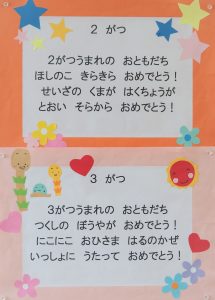 2 がつ
2がつうまれの おともだち
ほしのこ きらきら おめでとう!
せいざの くまが はくちょうが
とおい そらから おめでとう!
3 がつ
3がつうまれの おともだち
つくしの ぼうやが おめでとう!
にこにこ おひさま はるのかぜ
いっしょに うたって おめでとう!